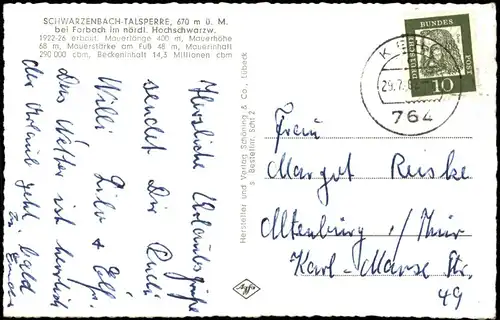 SCHWARZENBACH-TALSPERRE, 670 m ü. M.
bei Forbach im nördl. Hochschwarzw.
1922-26 erbaut, Mauerlänge 400 m, Mauerhöhe
68 m, Mauerstärke am Fuß 48 m, Mauerinhalt
290 000 cbm, Beckeninhalt 14,3 Millionen cbm
Herzliche Urlaubsgrüße
sendet Dir
Willi
Das Wetter ist herrlich
der Urlaub geht bald
zu Ende
Hersteller und Verlag Schöning & Co., Lübeck
DEUTSCHE BUNDESPOST
10
764
Frau
Margot Reiske
Altenburg / Thür
Karl-Marx Str.
49